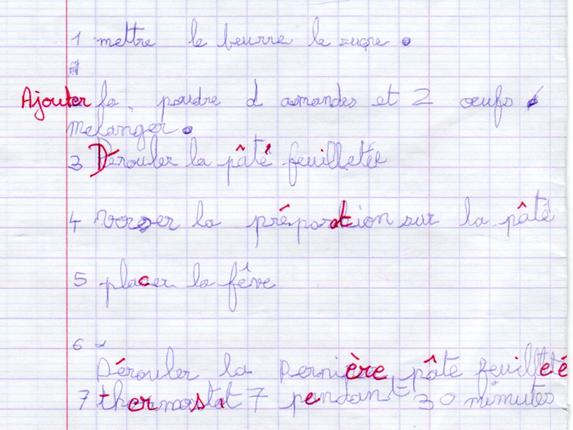 1 mettre le beurre le sucre .
Ajouter la poudre d amandes et 2 oeufs
melanger .
3 Dérouler la pâté feuilletée
4 verser la préparation sur la pâté
5 placer la fêve
6
Dérouler la Dernière pâte feuilleté
7 thermostat 7 pendant 30 minutes